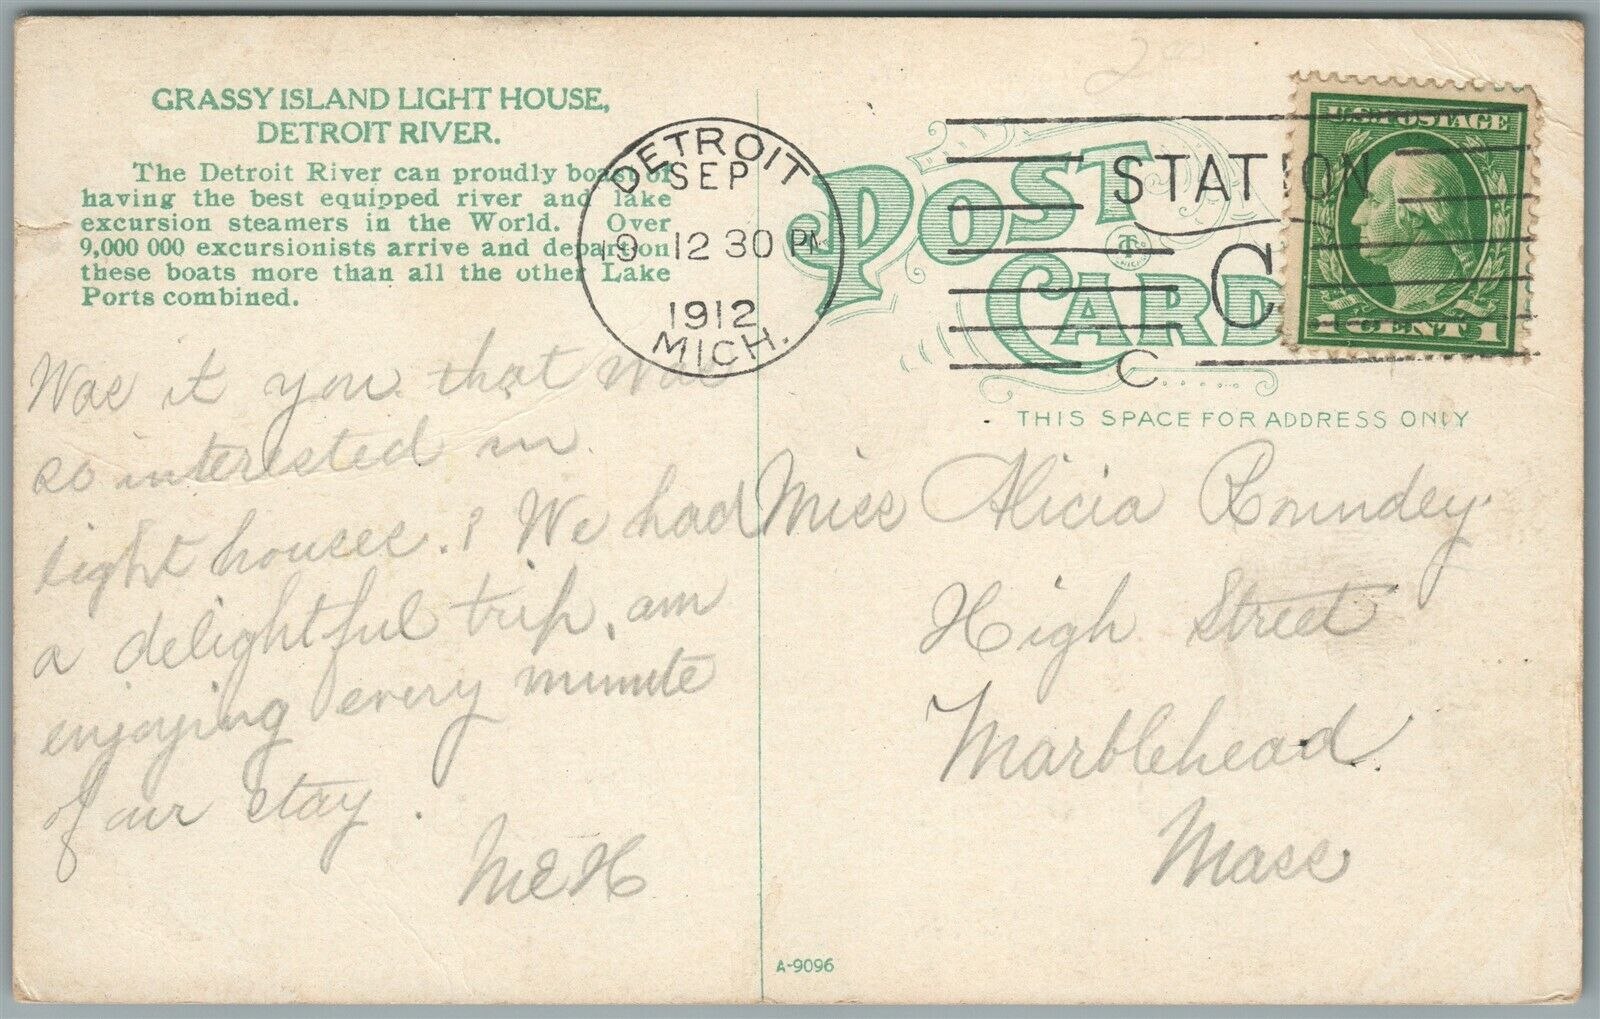 GRASSY ISLAND LIGHT HOUSE,
DETROIT RIVER.
The Detroit River can proudly boast of
having the best equipped river and lake
excursion steamers in the World. Over
9,000 000 excursionists arrive and depart on
these boats more than all the other Lake
Ports combined.
Was it you that was
so interested in
light houses.? We had
a delightful trip, am
enjoying every minute
of our stay.
MEH
DETROIT
SEP
9 12 30 PM
1912
MICH.
2
POST
CARD
STATION
C
C
U.S. POSTAGE
1 CENT 1
THIS SPACE FOR ADDRESS ONLY
Miss Alicia Roundey
High Street
Marblehead
Mass
A-9096